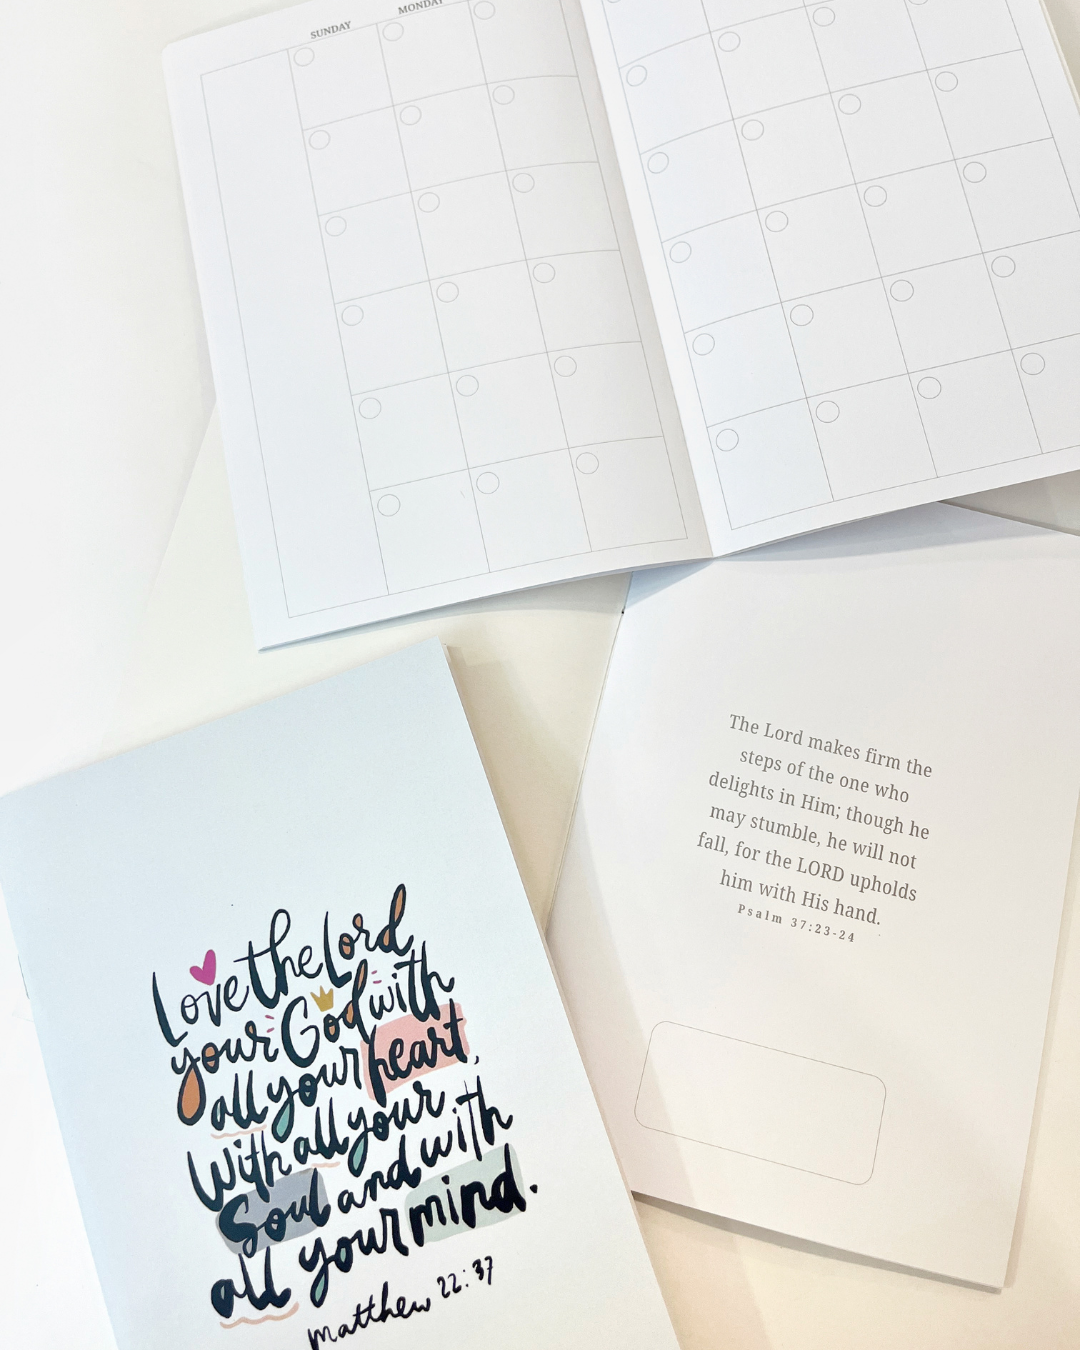 SUNDAY
MONDAY
The Lord makes firm the
steps of the one who
delights in Him; though he
may stumble, he will not
fall, for the LORD upholds
him with His hand.
Psalm 37:23-24
Love the Lord
your God with
all your heart,
With all your
Soul and with
all your mind.
matthew 22:37